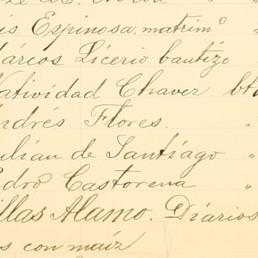 Espinosa, matrimº
Licerio bautizo
Natividad Chavez
Andrés Flores.
de Santiago
Pedro Castorena
Alamo. Diarios
con maíz